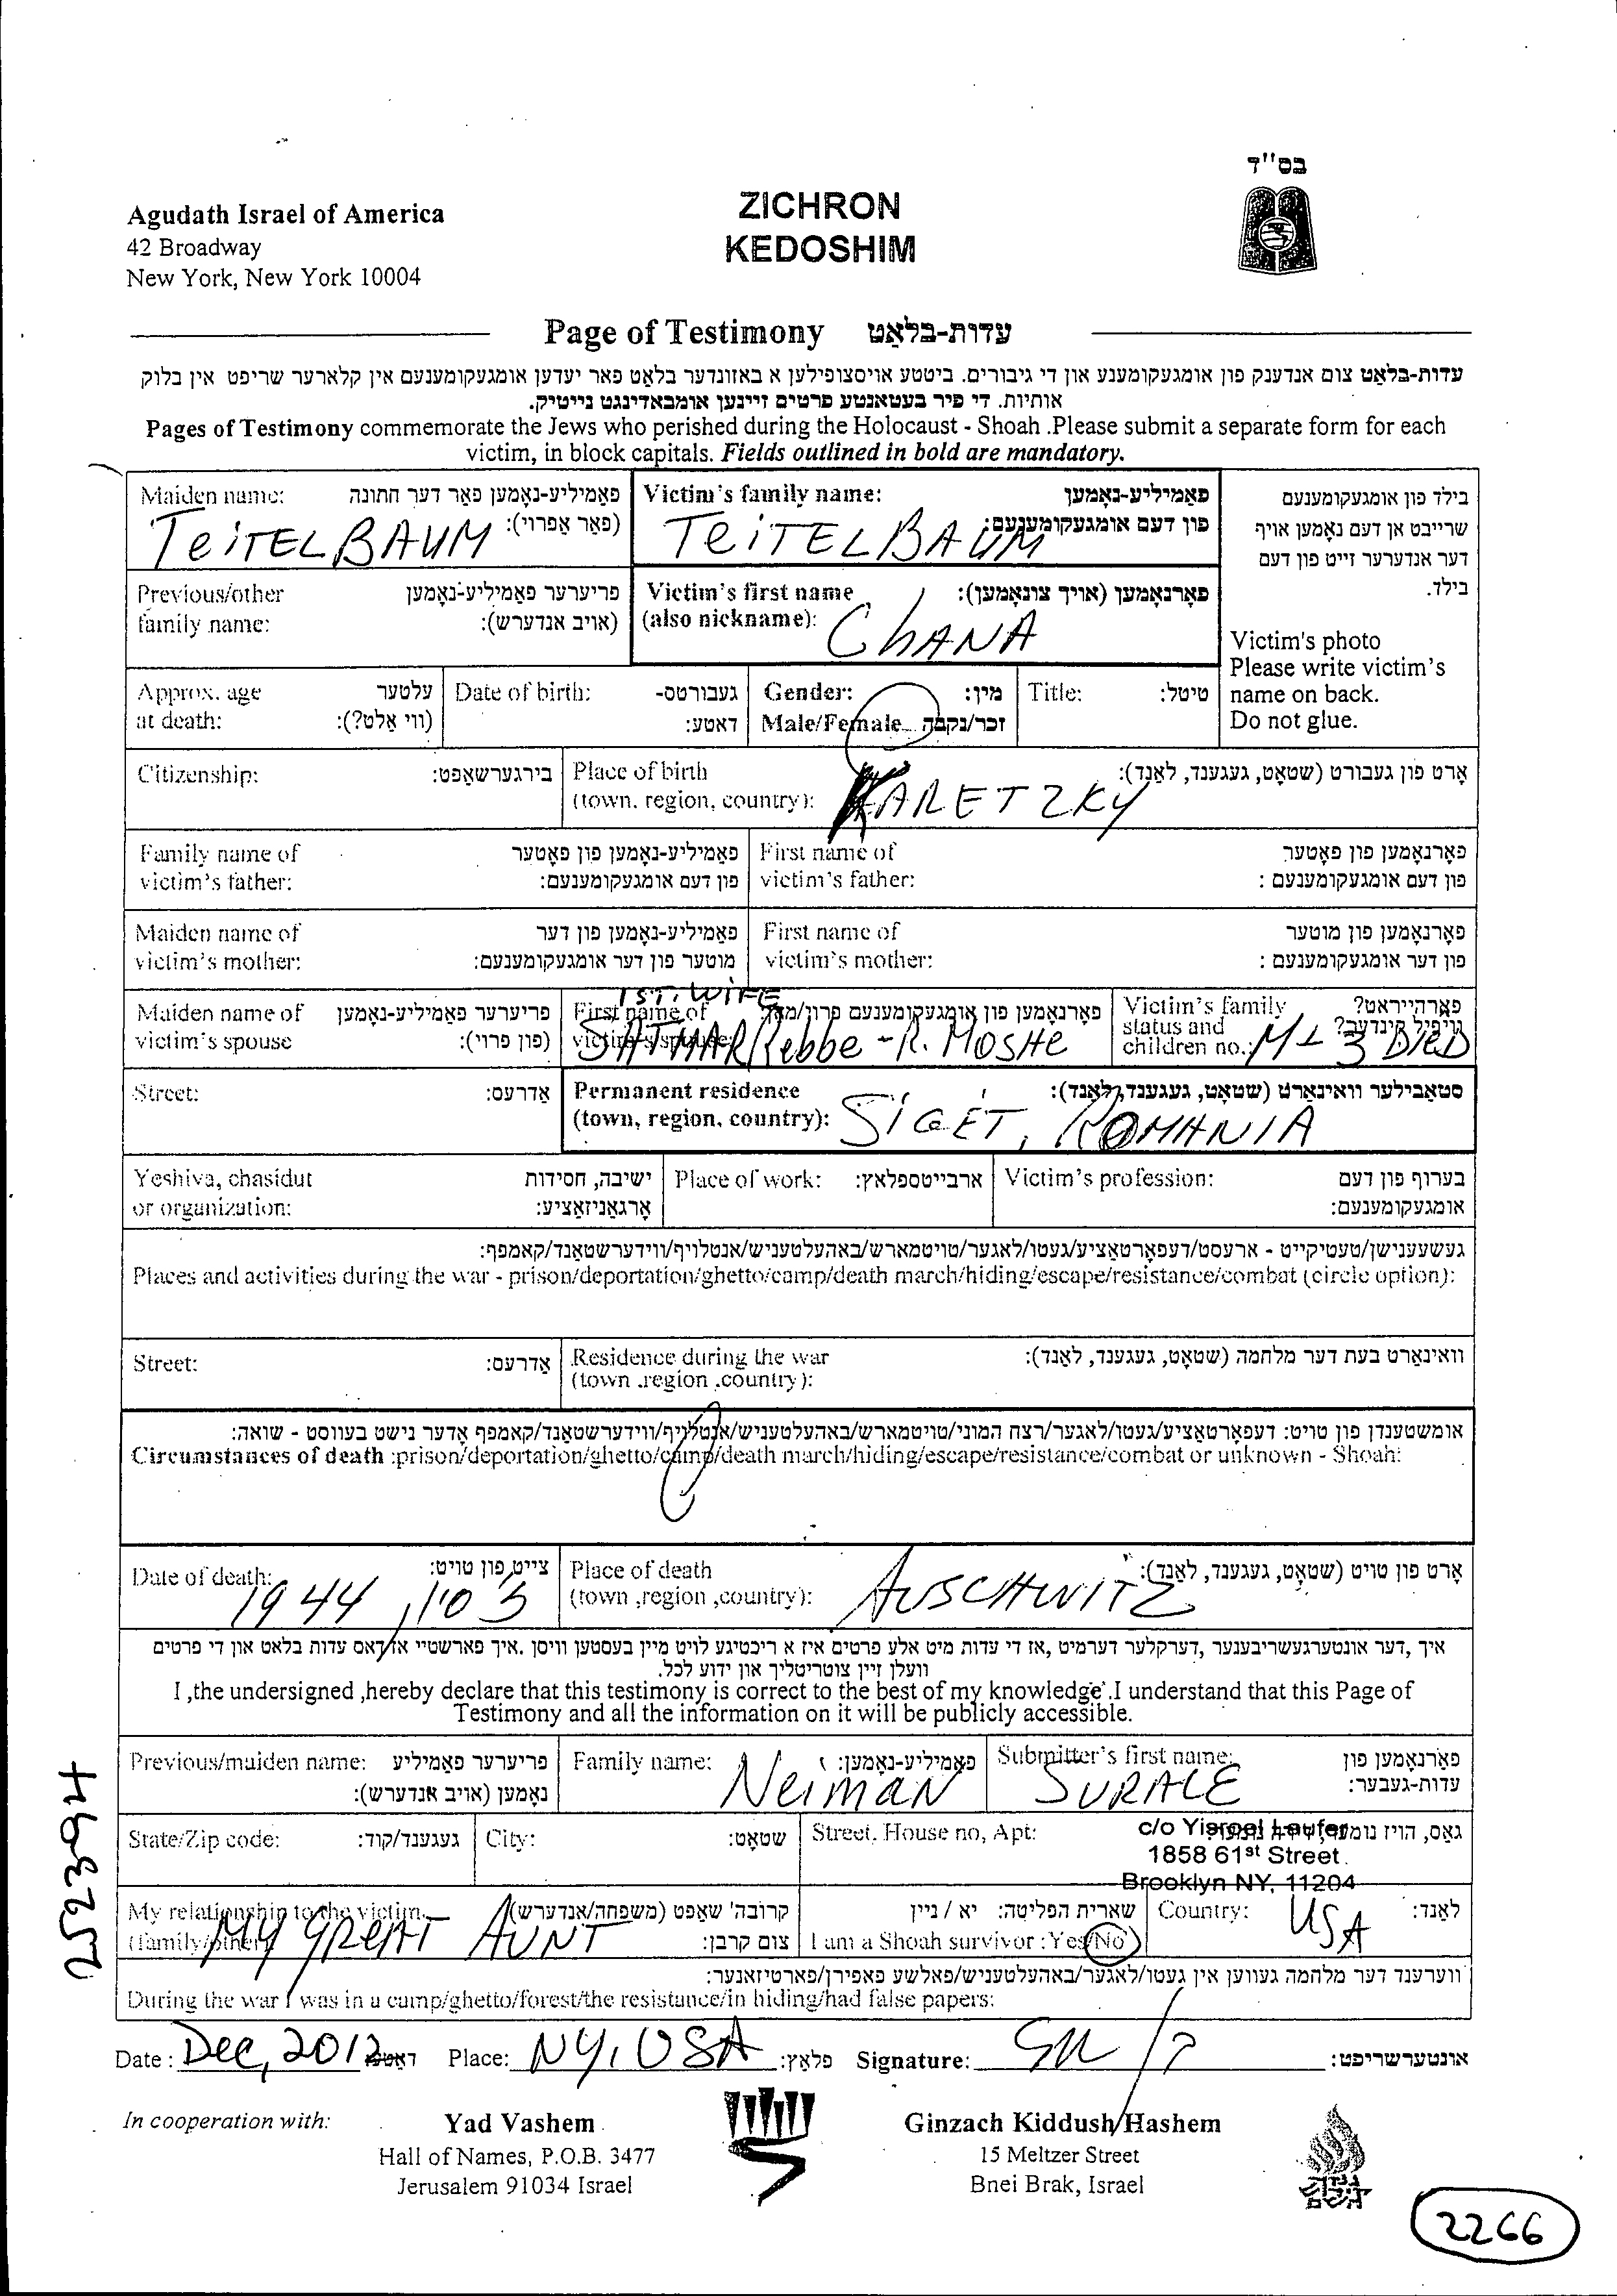 בס"ד
Agudath Israel of America
42 Broadway
New York, New York 10004
ZICHRON
KEDOSHIM
Page of Testimony עדות-בלאַט
עדות-בלאַט צום אנדענק פון אומגעקומענע און די גיבורים. ביטטע אויסצופילען א באזונדער בלאט פאר יעדען אומגעקומענעם אין קלארער שריפט אין בלוק
אותיות. די פיר בעטאנטע פרטים זיינען אומבאדינגט נייטיק.
Pages of Testimony commemorate the Jews who perished during the Holocaust - Shoah .Please submit a separate form for each
victim, in block capitals. Fields outlined in bold are mandatory.
Maiden name: פאַמיליע-נאָמען פאר דער חתונה
(פאַר אַפרוי):
TEITELBAUM
Victim's family name: פאַמיליע-נאָמען
פון דעם אומגעקומענעם:
TEITELBAUM
בילד פון אומגעקומענעם
שרייבט אן דעם נאָמען אויף
דער אנדערער זייט פון דעם
בילד.
Victim's photo
Please write victim's
name on back.
Do not glue.
Previous/other פריערער פאַמיליע-נאָמען
family name: (אויב אנדערש):
Victim's first name פאָרנאָמען (אויך צונאָמען):
(also nickname): CHANA
Approx. age עלטער
at death: (ווי אַלט?):
Date of birth: געבורטס-
דאטע:
Gender: מין:
Male/Female זכר/נקבה
Title: טיטל:
Citizenship: בירגערשאַפט:
Place of birth אָרט פון געבורט (שטאָט, געגענד, לאַנד):
(town, region, country): KARETZKY
Family name of פאַמיליע-נאָמען פון פאָטער
victim's father: פון דעם אומגעקומענעם:
First name of פאָרנאָמען פון פאָטער
victim's father: פון דעם אומגעקומענעם :
Maiden name of פאַמיליע-נאָמען פון דער
victim's mother: מוטער פון דער אומגעקומענעם:
First name of פאָרנאָמען פון מוטער
victim's mother: פון דער אומגעקומענעם :
Maiden name of פריערער פאַמיליע-נאָמען
victim's spouse (פון פרוי):
1ST. WIFE
First name of פאָרנאָמען פון אומגעקומענעם
victim's spouse:
SATMAR Rebbe - R. MOSHE
Victim's family פאַרהייראט?
status and וויפיל קינדער?
children no.: M + 3 DIED
Street: אַדרעס:
Permanent residence סטאַבילער וואוינאָרט (שטאָט, געגענד, לאַנד):
(town, region, country): SIGET, ROMANIA
Yeshiva, chasidut ישיבה, חסידות
or organization: אָרגאַניזאַציע:
Place of work: ארבייטספלאץ:
Victim's profession: בערוף פון דעם
אומגעקומענעם:
געשעענישן/טעטיקייט - ארעסט/דעפּאָרטאַציע/געטו/לאַגער/טויטמארש/באהעלטעניש/אנטלויף/ווידערשטאַנד/קאמפף:
Places and activities during the war - prison/deportation/ghetto/camp/death march/hiding/escape/resistance/combat (circle option):
Street: אַדרעס:
Residence during the war וואוינאָרט בעת דער מלחמה (שטאָט, געגענד, לאַנד):
(town .region .country):
אומשטענדן פון טויט: דעפּאָרטאַציע/געטו/לאַגער/רצח המוני/טויטמארש/באהעלטעניש/אנטלויף/ווידערשטאַנד/קאמפף אָדער נישט בעווסט - שואה:
Circumstances of death :prison/deportation/ghetto/camp/death march/hiding/escape/resistance/combat or unknown - Shoah:
Date of death: צייט פון טויט:
1944
Place of death אָרט פון טויט (שטאָט, געגענד, לאַנד):
(town ,region ,country): AUSCHWITZ
איך ,דער אונטערגעשריבענער ,דערקלער דערמיט ,אז די עדות מיט אלע פרטים איז א ריכטיגע לויט מיין בעסטען וויסן .איך פארשטיי אז דאס עדות בלאט און די פרטים
וועלן זיין צוטריטליך און ידוע לכל.
I ,the undersigned ,hereby declare that this testimony is correct to the best of my knowledge .I understand that this Page of
Testimony and all the information on it will be publicly accessible.
Previous/maiden name: פריערער פאַמיליע
נאָמען (אויב אנדערש):
Family name: פאַמיליע-נאָמען:
Neiman
Submitter's first name: פאָרנאָמען פון
עדות-געבער:
SURALE
State/Zip code: געגענד/קוד:
City: שטאָט:
Street, House no, Apt:
c/o Yisroel Laufer
1858 61st Street
Brooklyn NY, 11204
My relationship to the victim קרובה' שאפט (משפחה/אנדערש)
(family/other) צום קרבן:
MY GREAT AUNT
שארית הפליטה: יא / ניין
I am a Shoah survivor :Yes/No
Country: לאַנד:
USA
ווערענד דער מלחמה געווען אין געטו/לאגער/באהעלטעניש/פאלשע פאפירן/פארטיזאנער:
During the war I was in a camp/ghetto/forest/the resistance/in hiding/had false papers:
Date: Dec, 2012 Place: NY, USA פלאץ: Signature: אונטערשריפט:
In cooperation with:
Yad Vashem
Hall of Names, P.O.B. 3477
Jerusalem 91034 Israel
Ginzach Kiddush Hashem
15 Meltzer Street
Bnei Brak, Israel
גנזך
קידוש
השם
2266
252394